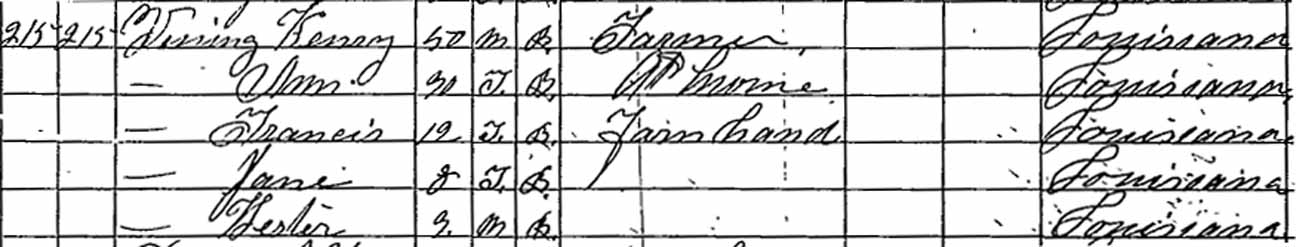 215 215 Vining Henry 50 M. B. Farmer Louisiana
— Ann 30 F. B. At home Louisiana
— Francis 12 F. B. Farm hand Louisiana
— Jane 8 F. B. Louisiana
— Hester 3 M B. Louisiana